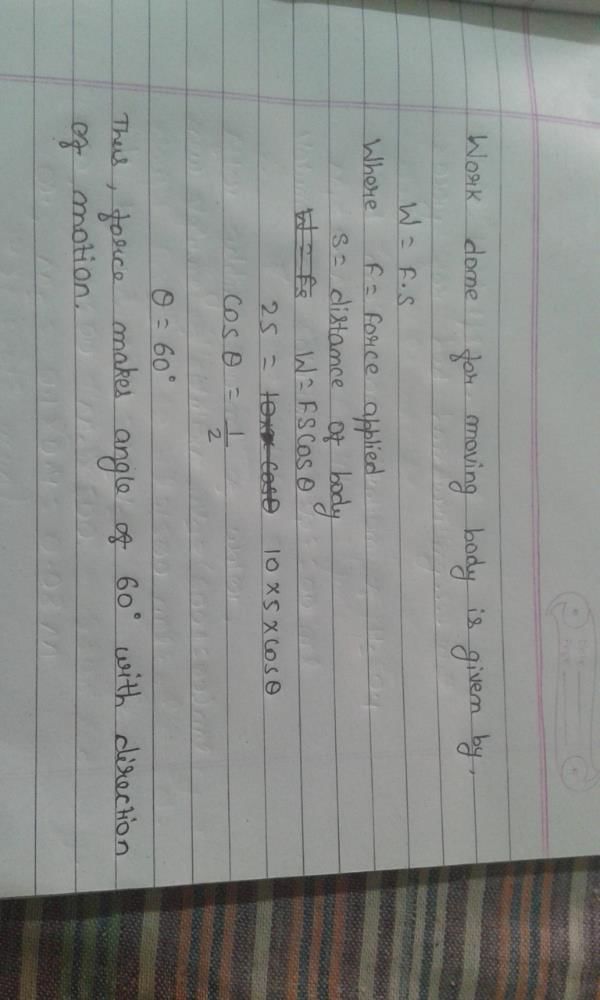 Work done for moving body is given by,
W = F.S
Where F = Force applied
S = distance of body
W = Fs W = FS Cos θ
25 = 10 × 5 × Cos θ
Cos θ = 1/2
θ = 60°
Thus, force makes angle of 60° with direction
of motion.